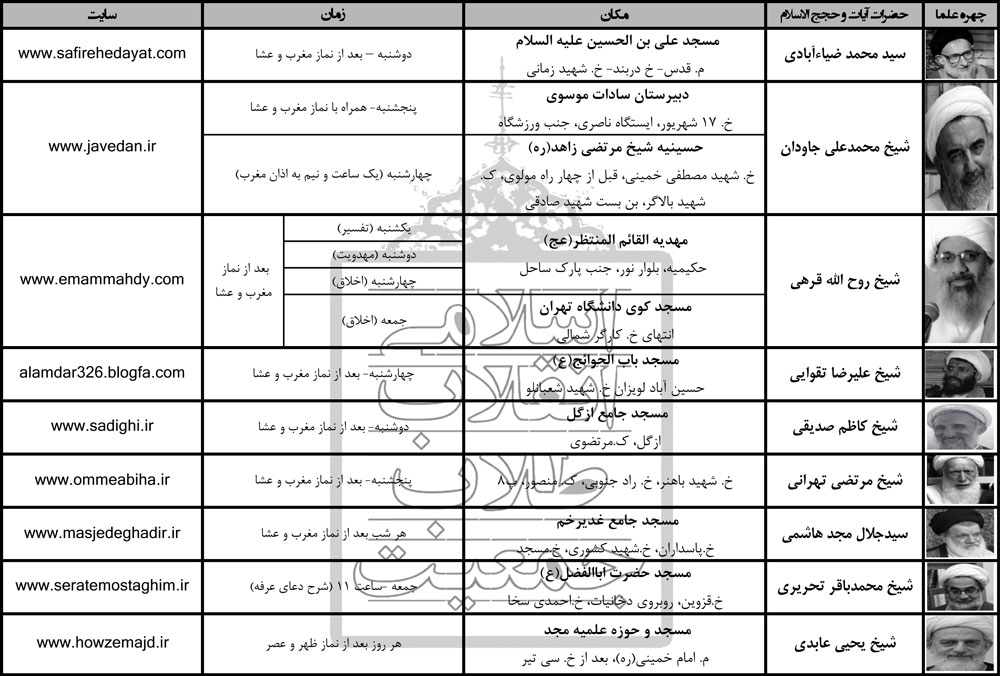 چهره علما	حضرات آیات و حجج الاسلام	مکان	زمان	سایت
سید محمد ضیاءآبادی
مسجد علی بن الحسین علیه السلام
م. قدس- خ دربند- خ. شهید زمانی
دوشنبه – بعد از نماز مغرب و عشا
www.safirehedayat.com
شیخ محمدعلی جاودان
دبیرستان سادات موسوی
خ. ۱۷ شهریور، ایستگاه ناصری، جنب ورزشگاه
پنجشنبه- همراه با نماز مغرب و عشا
حسینیه شیخ مرتضی زاهد(ره)
خ. شهید مصطفی خمینی، قبل از چهار راه مولوی، ک.
شهید بالاگر، بن بست شهید صادقی
چهارشنبه (یک ساعت و نیم به اذان مغرب)
www.javedan.ir
شیخ روح الله قرهی
مهدیه القائم المنتظر(عج)
حکیمیه، بلوار نور، جنب پارک ساحل
یکشنبه (تفسیر)
دوشنبه (مهدویت)
چهارشنبه (اخلاق)
مسجد کوی دانشگاه تهران
انتهای خ. کارگر شمالی
جمعه (اخلاق)
بعد از نماز
مغرب و عشا
www.emammahdy.com
شیخ علیرضا تقوایی
مسجد باب الحوائج(ع)
حسین آباد لویزان خ. شهید شعبانلو
چهارشنبه- بعد از نماز مغرب و عشا
alamdar326.blogfa.com
شیخ کاظم صدیقی
مسجد جامع ازگل
ازگل، ک.مرتضوی
دوشنبه- بعد از نماز مغرب و عشا
www.sadighi.ir
شیخ مرتضی تهرانی
خ. شهید باهنر، خ. راد جنوبی، ک. منصور، پ۸
پنجشنبه- بعد از نماز مغرب و عشا
www.ommeabiha.ir
سیدجلال مجد هاشمی
مسجد جامع غدیرخم
خ.پاسداران، خ.شهید کشوری، خ.مسجد
هر شب بعد از نماز مغرب و عشا
www.masjedeghadir.ir
شیخ محمدباقر تحریری
مسجد حضرت اباالفضل(ع)
خ.قزوین، روبروی دخانیات، خ.احمدی سخا
جمعه -ساعت ۱۱ (شرح دعای عرفه)
www.seratemostaghim.ir
شیخ یحیی عابدی
مسجد و حوزه علمیه مجد
م. امام خمینی(ره)، بعد از خ. سی تیر
هر روز بعد از نماز ظهر و عصر
www.howzemajd.ir
اسلامی
انقلاب
طلاب
جمعیت